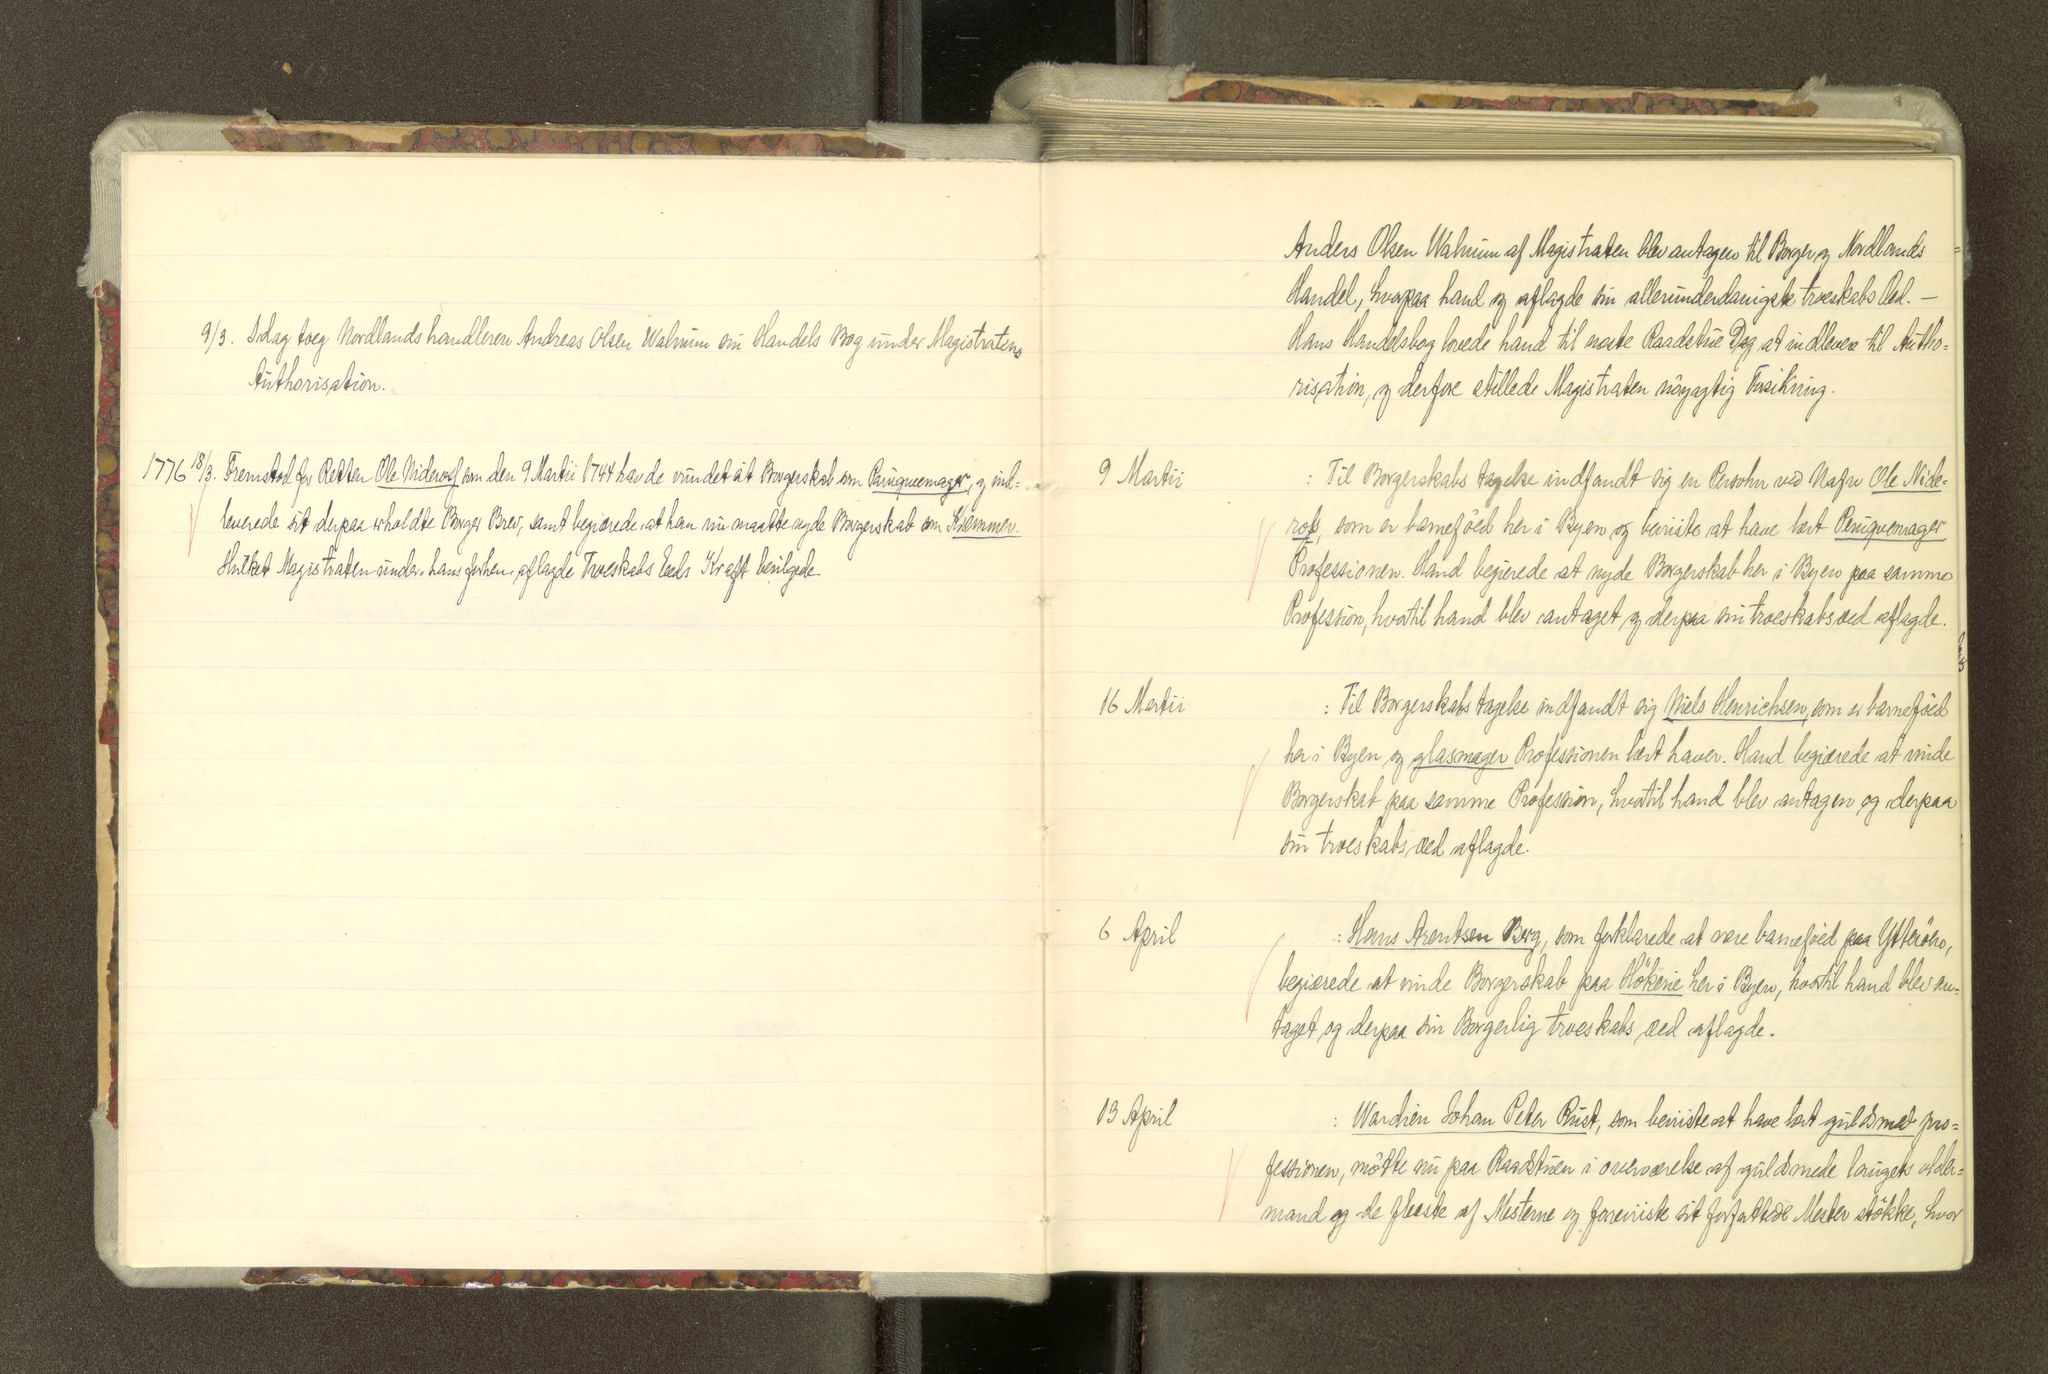 9/3. Idag toeg Nordlandshandleren Andreas Olsen Walnum sin Handels Bog under Magistratens
Authorisation.
1776 18/3. Fremstod for Retten Ole Niderosf som den 9 Martii 1744 havde vundet sit Borgerskab som Paruquemager, og ind-
leverede sit derpaa erholdte Borger Brev, samt begiærede at han nu maatte nyde Borgerskab som Kræmmer.
Hvilket Magistraten under hans forhen aflagde Troeskabs Eeds Kraft bevilgede
Anders Olsen Walnum af Magistraten blev antagen til Borger og Nordlands
Handel, hvorpaa hand og aflagde sin allerunderdanigste troeskabs Eed. —
Hans Handelsbog lovede hand til neste Raadstue Dag at indlevere til Autho-
risation, og derfore stillede Magistraten nöyagtig Forsikring.
9 Martii : Til Borgerskabs tagelse indfandt sig en Persohn ved Nafn Ole Nide-
rofs, som er barneföed her i Byen og beviiste at have lært Peruquemager
Professionen. Hand begierede at nyde Borgerskab her i Byen paa samme
Profession, hvortil hand blev antaget og derpaa sin troeskabs æd aflagde.
16 Martii : Til Borgerskabs tagelse indfandt sig Niels Henrichsen, som er barneföed
her i Byen og glasmager Professionen lært haver. Hand begiærede at vinde
Borgerskab paa samme Profession, hvortil hand blev antagen og derpaa
sin troeskabs æd aflagde.
6 April : Hans Arentsen Berg, som forklarede at være barneföed paa Ytteröen,
begiærede at vinde Borgerskab paa Hökerie her i Byen, hvortil hand blev an-
taget og derpaa sin Borgerlig troeskabs æd aflagde.
13 April : Wardien Johan Peter Rust, som beviiste at have lært guldsmed pro-
fessionen, mötte nu paa Raadstuen i overværelse af guldsmede laugets older-
mand og de fleeste af Mesterne og foreviiste sit forfattede Mester stökke, hvor